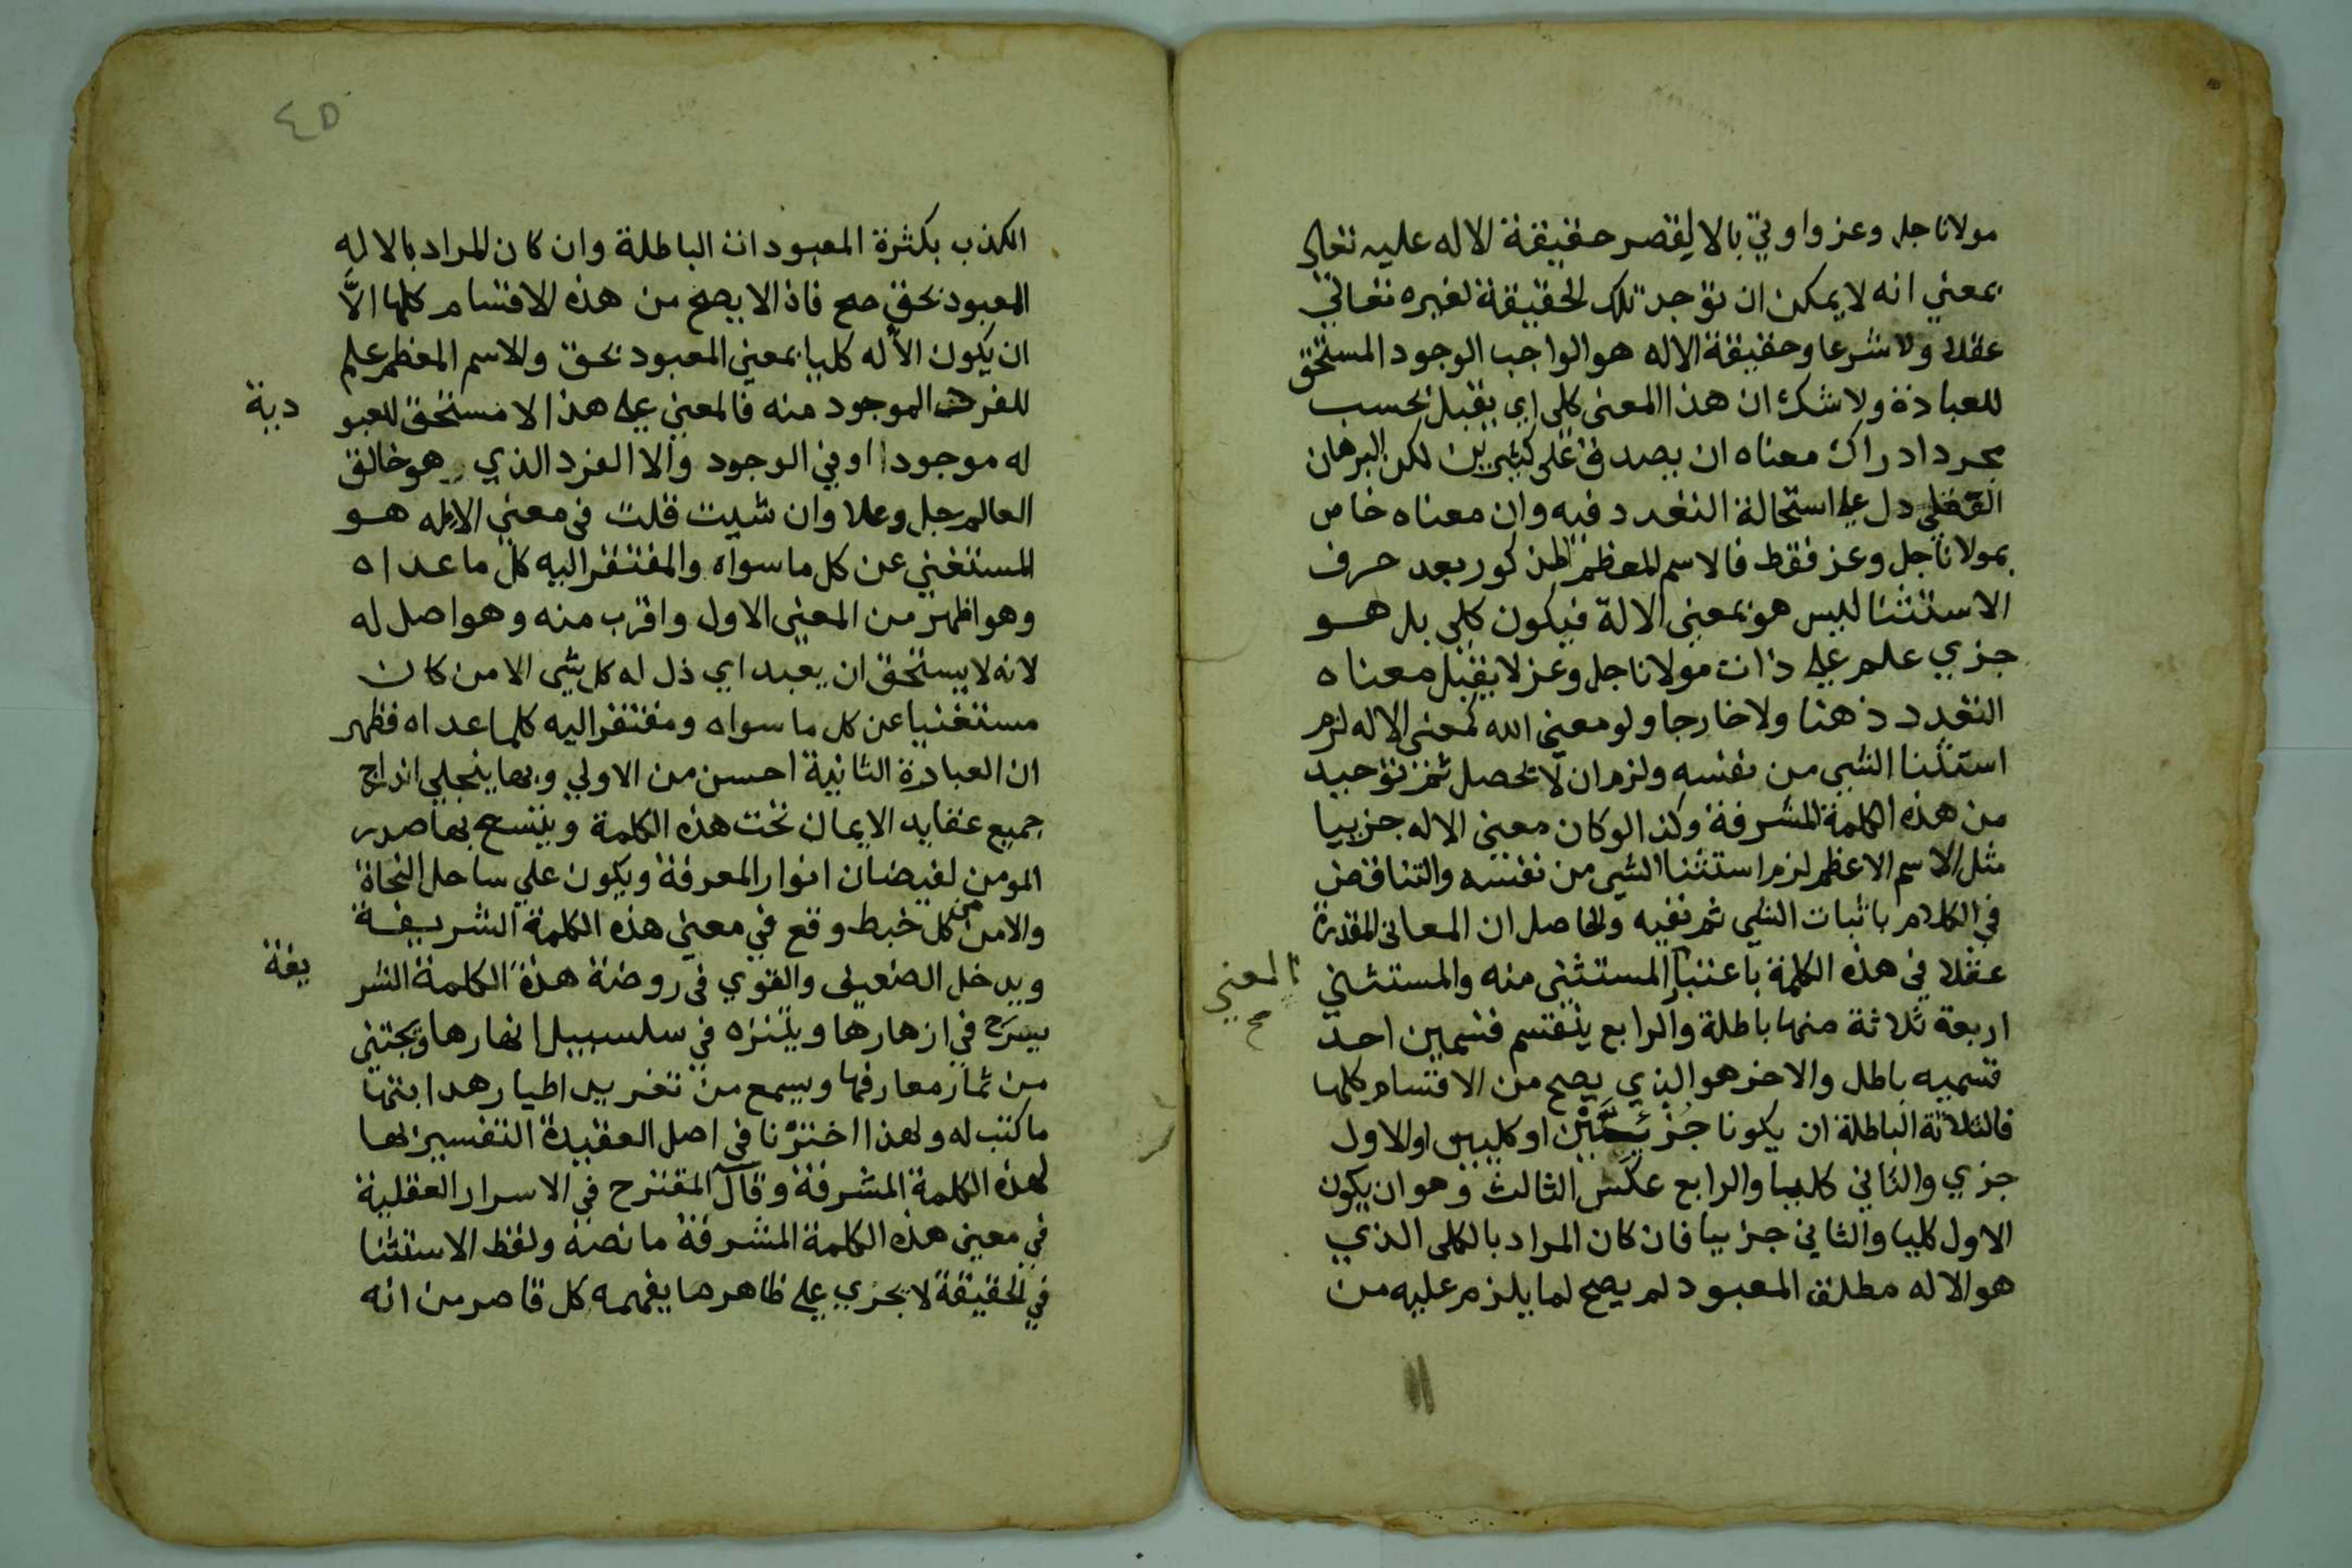 مولانا جل وعز واوتي بالا ليقصر حقيقة الاله عليه تعالى
بمعني انه لا يمكن ان توجد تلك الحقيقة لغيره تعالي
عقلا ولا شرعا وحقيقة الاله هو الواجب الوجود المستحق
للعبادة ولا شك ان هذا المعنى كلي اي يقبل بحسب
مجرد ادراك معناه ان يصدق على كثيرين لكن البرهان
القطعي دل علي استحالة التعدد فيه وان معناه خاص
بمولانا جل وعز فقط فالاسم المعظم المذكور بعد حرف
الاستثنا ليس هو بمعنى الالة فيكون كلي بل هو
جزي علم علي ذات مولانا جل وعز لا يقبل معناه
التعدد ذهنا ولا خارجا ولو معني الله كمعنى الاله لزم
استثنا الشي من نفسه ولزم ان لا يحصل ثم توحيد
من هذه الكلمة المشرفة وكذا لو كان معنى الاله جزييا
مثل الاسم الاعظم لزم استثنا الشي من نفسه والتناقض
في الكلام باثبات الشي ثم نفيه والحاصل ان المعاني المقدرة
عقلا في هذه الكلمة باعتبار المستثنى منه والمستثني
المعني
صح
اربعة ثلاثة منها باطلة والرابع ينقسم قسمين احد
قسميه باطل والاخر هو الذي يصح من الاقسام كلها
فالثلاثة الباطلة ان يكونا جزئيين او كليين او الاول
جزي والثاني كليا والرابع عكس الثالث وهو ان يكون
الاول كليا والثاني جزييا فان كان المراد بالكلي الذي
هو الاله مطلق المعبود لم يصح لما يلزم عليه من
٤٥
الكذب بكثرة المعبودات الباطلة وان كان المراد بالاله
المعبود بحق صح فاذا لا يصح من هذه الاقسام كلها الاَّ
ان يكون الاله كليا بمعنى المعبود بحق والاسم المعظم علم
للفرد الموجود منه فالمعني علي هذا لا مستحق للعبو
دية
له موجودا او في الوجود والا الفرد الذي هو خالق
العالم جل وعلا وان شيت قلت في معني الاله هو
المستغني عن كل ما سواه والمفتقر اليه كل ما عداه
وهو اظهر من المعنى الاول واقرب منه وهو اصل له
لانه لا يستحق ان يعبد اي ذل له كل شي الا من كان
مستغنيا عن كل ما سواه ومفتقر اليه كلما عداه فظهر
ان العبادة الثانية احسن من الاولي وبها ينجلي اندراج
جميع عقايد الايمان تحت هذه الكلمة ويتسع بها صدر
المومن لفيضان انوار المعرفة ويكون علي ساحل النجاة
والامن من كل خبط وقع في معني هذه الكلمة الشريفة
ويدخل الضعيف والقوي في روضة هذه الكلمة الشر
يفة
يسرح في ازهارها ويتنزه في سلسبيل انهارها ويجتني
من ثمار معارفها ويسمع من تغريد اطيار هدايتها
ما كتب له ولهذا اخترنا في اصل العقيدة التفسير لها
لهذه الكلمة المشرفة وقال المقترح في الاسرار العقلية
في معنى هذه الكلمة المشرفة ما نصه ولفظ الاستثنا
في الحقيقة لا يجري على ظاهرها يفهمه كل قاصر من انه